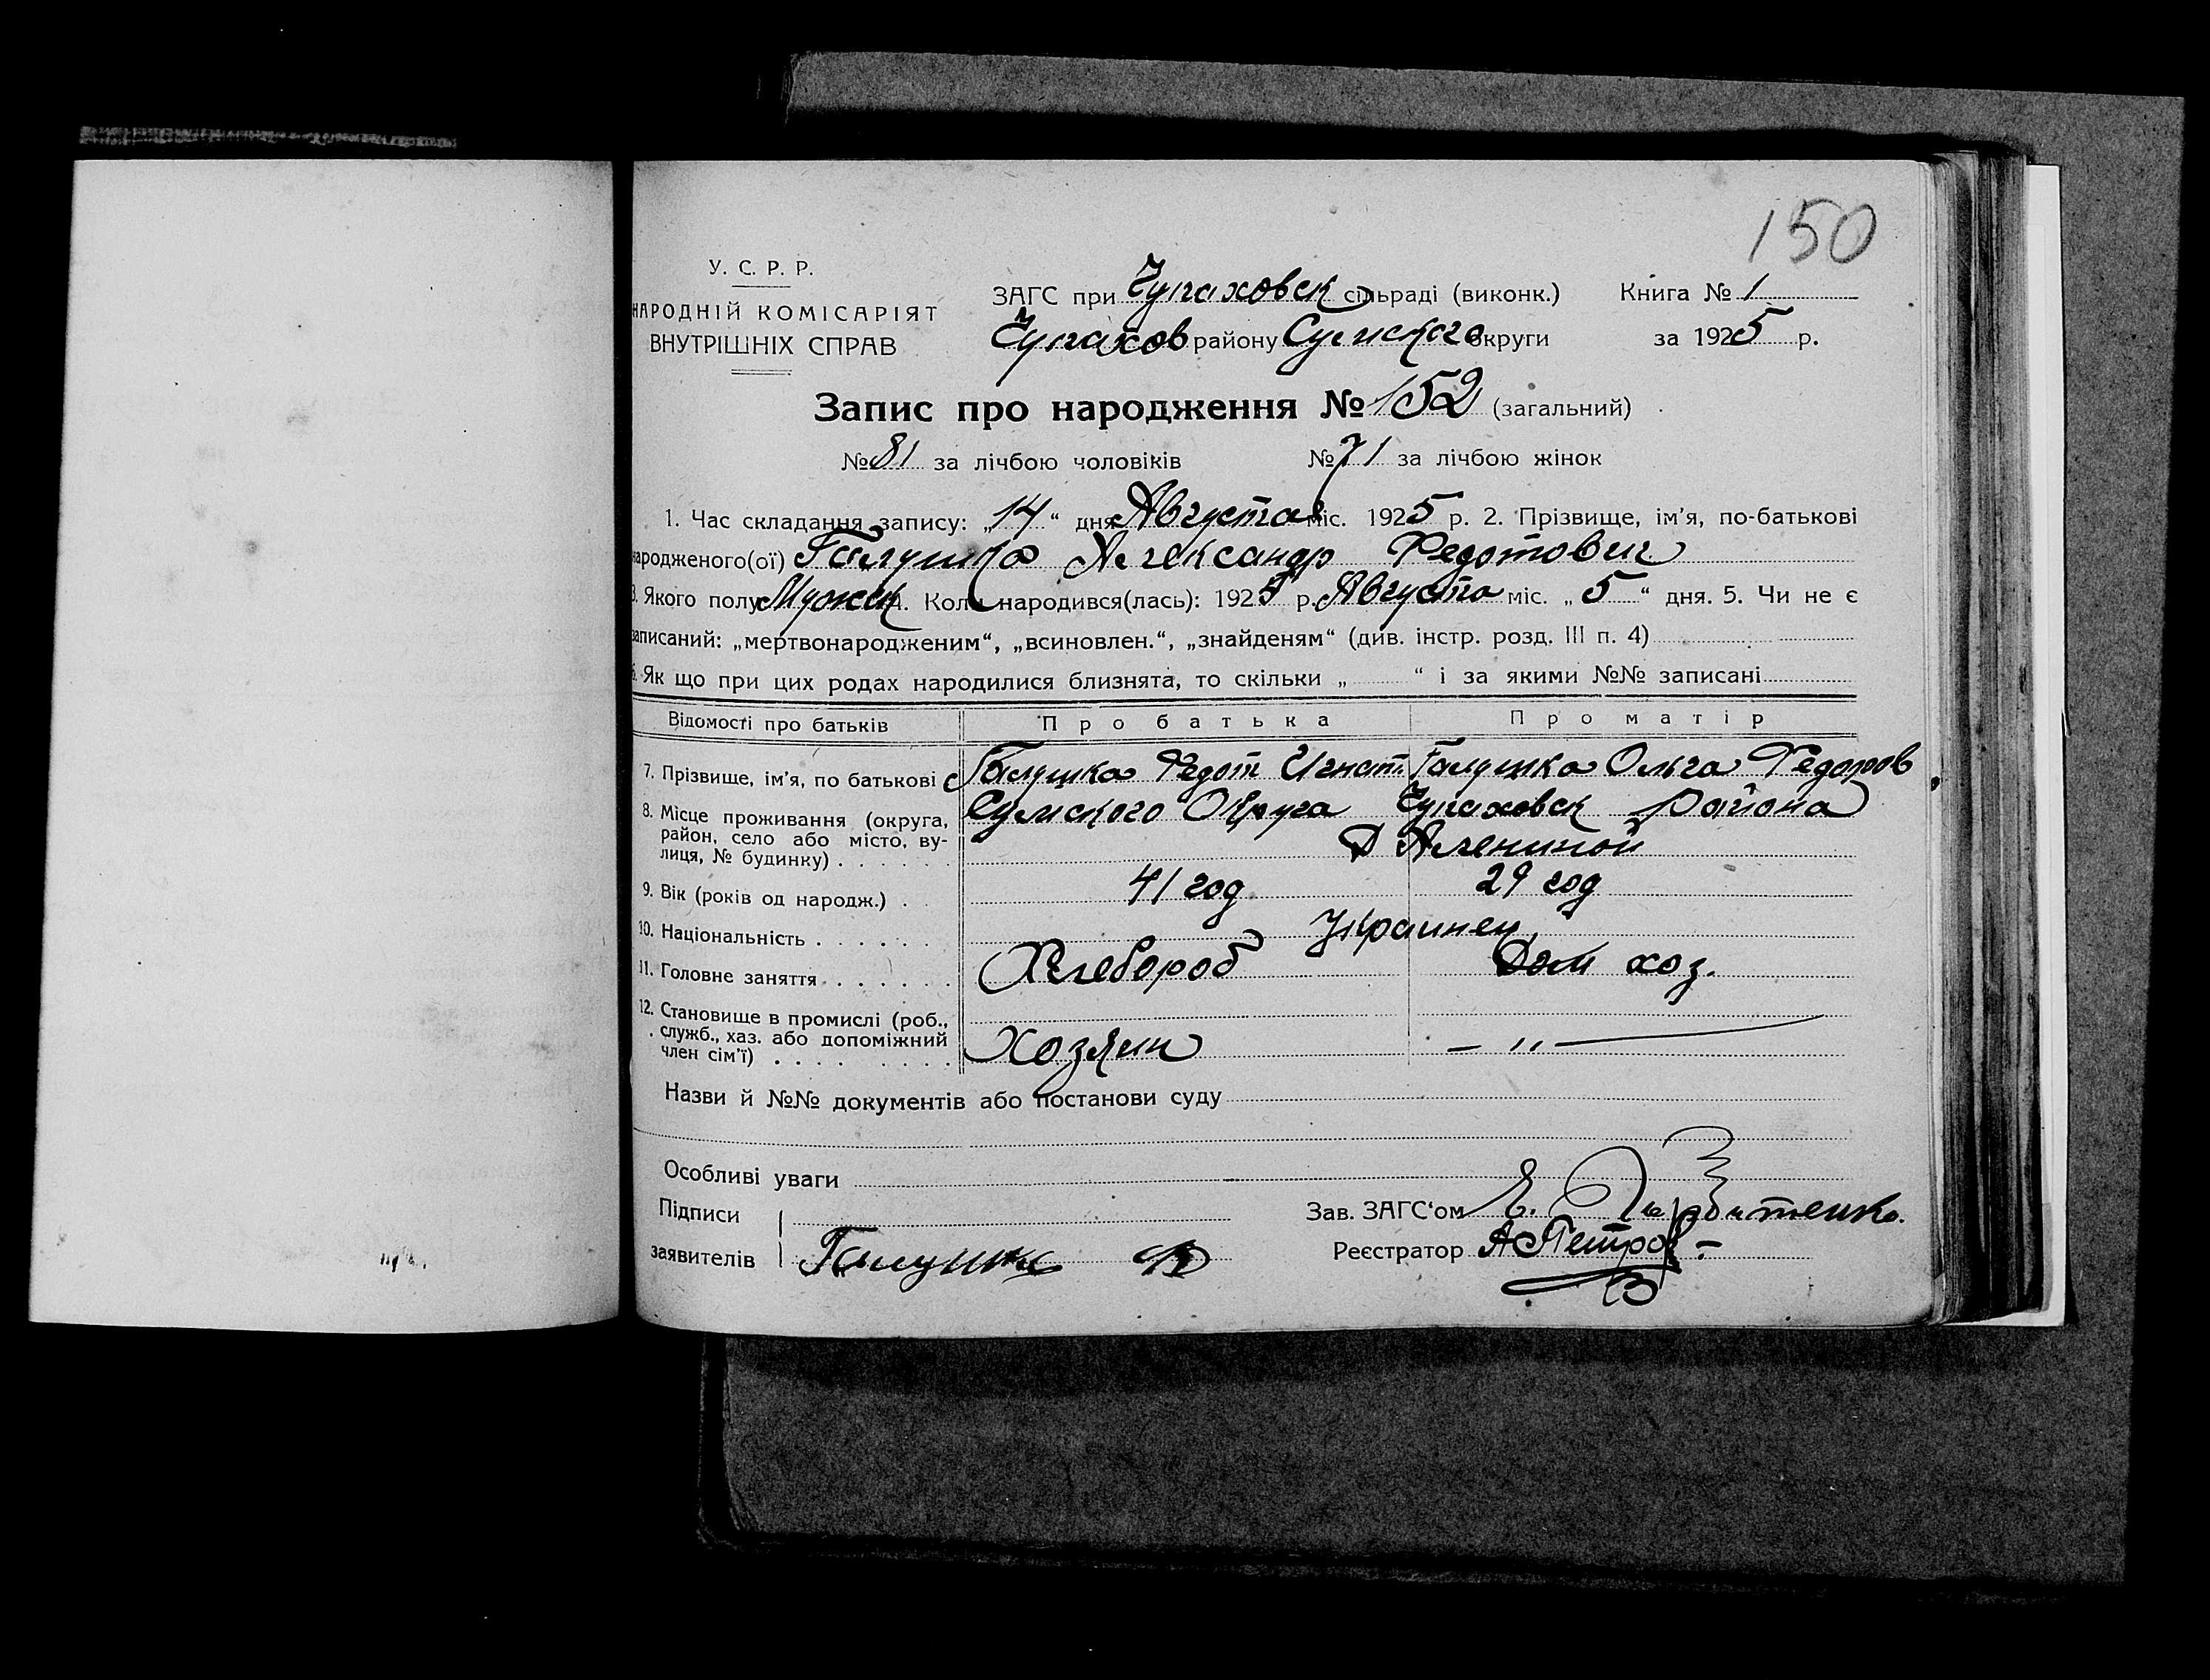 150
У. С. Р. Р.
НАРОДНІЙ КОМІСАРІЯТ
ВНУТРІШНІХ СПРАВ
ЗАГС при Чупаховск сільраді (виконк.) Книга № 1
Чупахов району Сумского округи за 1925 р.
Запис про народження № 152 (загальний)
№ 81 за лічбою чоловіків № 71 за лічбою жінок
1. Час складання запису: „14“ дня Августа міс. 1925 р. 2. Прізвище, ім'я, по-батькові
народженого(ої) Галушка Александр Федотович
3. Якого полу Мужск 4. Коли народився(лась): 1925 р. Августа міс. „5“ дня. 5. Чи не є
записаний: „мертвонародженим“, „всиновлен.“, „знайденям“ (див. інстр. розд. III п. 4)
6. Як що при цих родах народилися близнята, то скільки „ “ і за якими №№ записані
Відомості про батьків Про батька Про матір
7. Прізвище, ім'я, по батькові Галушка Федот Игнат. Галушка Ольга Федоров
8. Місце проживання (округа, Сумского Округа Чупаховск Района
район, село або місто, ву-
лиця, № будинку) Д
9. Вік (років од народж.) 41 год 29 год
10. Національність Украинец
11. Головне заняття Хлебороб Дом хоз.
12. Становище в промислі (роб.,
служб., хаз. або допоміжний
член сім'ї) Хозяин — „ —
Назви й №№ документів або постанови суду
Особливі уваги
Підписи
Зав. ЗАГС'ом Е.
заявителів Галушка
Реєстратор А Петров